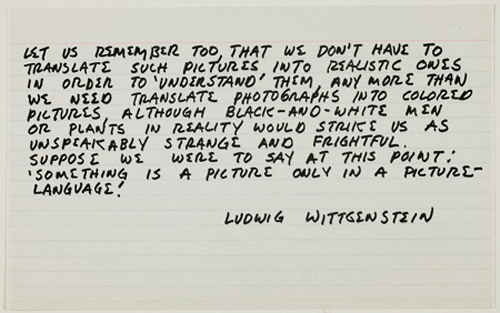 LET US REMEMBER TOO, THAT WE DON'T HAVE TO
TRANSLATE SUCH PICTURES INTO REALISTIC ONES
IN ORDER TO 'UNDERSTAND' THEM, ANY MORE THAN
WE NEED TRANSLATE PHOTOGRAPHS INTO COLORED
PICTURES, ALTHOUGH BLACK-AND-WHITE MEN
OR PLANTS IN REALITY WOULD STRIKE US AS
UNSPEAKABLY STRANGE AND FRIGHTFUL.
SUPPOSE WE WERE TO SAY AT THIS POINT:
'SOMETHING IS A PICTURE ONLY IN A PICTURE-
LANGUAGE.'
LUDWIG WITTGENSTEIN